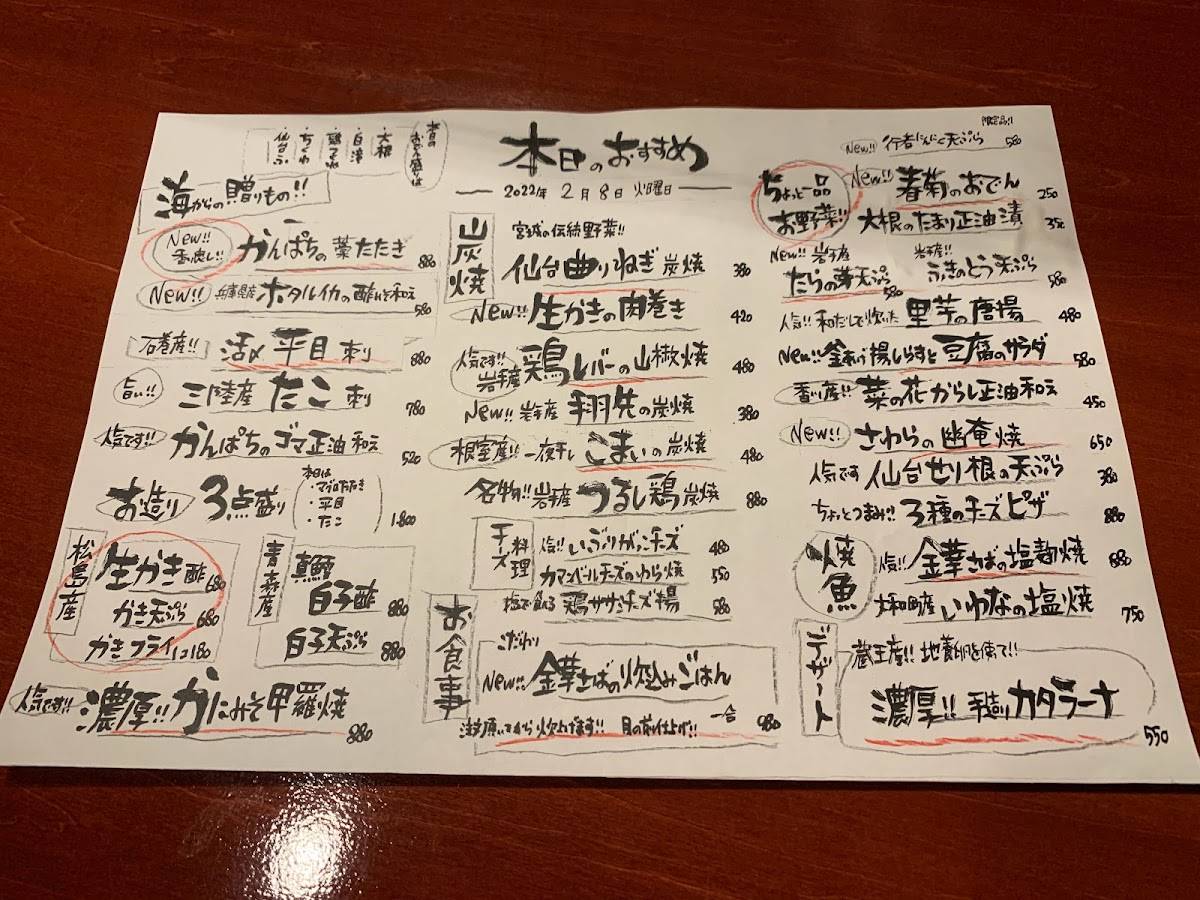 本日のおすすめ
2022年 2月8日 火曜日
本日のおでん盛りは
・大根
・白滝
・ちくわ
・仙台ふ
海からの贈りもの!!
New!! かんぱちの藁たたき 880
New!! 兵庫県産 ホタルイカの酢みそ和え 580
石巻産!! 活〆平目刺 880
旨い!! 三陸産たこ刺 780
人気です!! かんぱちのゴマ正油和え 520
お造り 3点盛り 1.800
本日は
・マグロたたき
・平目
・たこ
松島産
生かき酢 680
かき天ぷら 680
かきフライ 1コ180
青森産
真鱈白子酢 880
白子天ぷら 880
人気です!! 濃厚!! かにみそ甲羅焼 880
炭焼
宮城の伝統野菜!!
仙台曲りねぎ炭焼 380
New!! 生かきの肉巻き 420
人気です!! 岩手産 鶏レバーの山椒焼 480
New!! 岩手産 の炭焼 380
根室産!! 一夜干し こまいの炭焼 480
名物!! 岩手産 つるし鶏炭焼 880
チーズ料理
人気!! いぶりがっこチーズ 480
カマンベールチーズのわら焼 550
塩で食べる 鶏ササミチーズ揚 580
お食事
こだわり
New!! 金華さばの炊込みごはん
一合 980
注文頂いてから炊上げます!! 目の前仕上げ!!
限定品!!
New!! 行者にんにく天ぷら 580
ちょっと一品お野菜!!
New!! 春菊のおでん 250
大根のたまり正油漬 350
New!! 岩手産 たらの芽天ぷら 580
岩手産!! ふきのとう天ぷら 580
人気!! 和だしで炊いた 里芋の唐揚 480
New!! 釜あげ揚しらすと豆腐のサラダ 580
香川産!! 菜の花からし正油和え 450
New!! さわらの幽庵焼 650
人気です 仙台せり根の天ぷら 380
ちょっとつまみ!! 3種のチーズピザ 880
焼魚
人気!! 金華さばの塩麹焼 880
大和町産 いわなの塩焼 750
デザート
蔵王産!! 地養卵を使って!!
濃厚!! 手造りカタラーナ 550